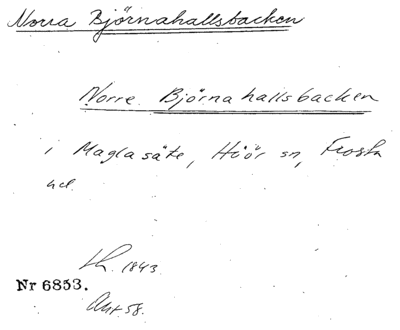 Norra Björnahallsbacken
Norre Björnahallsbacken
i Maglasäte, Höör sn, Frosta
hd.
1843
Nr 6853.
Akt 58.